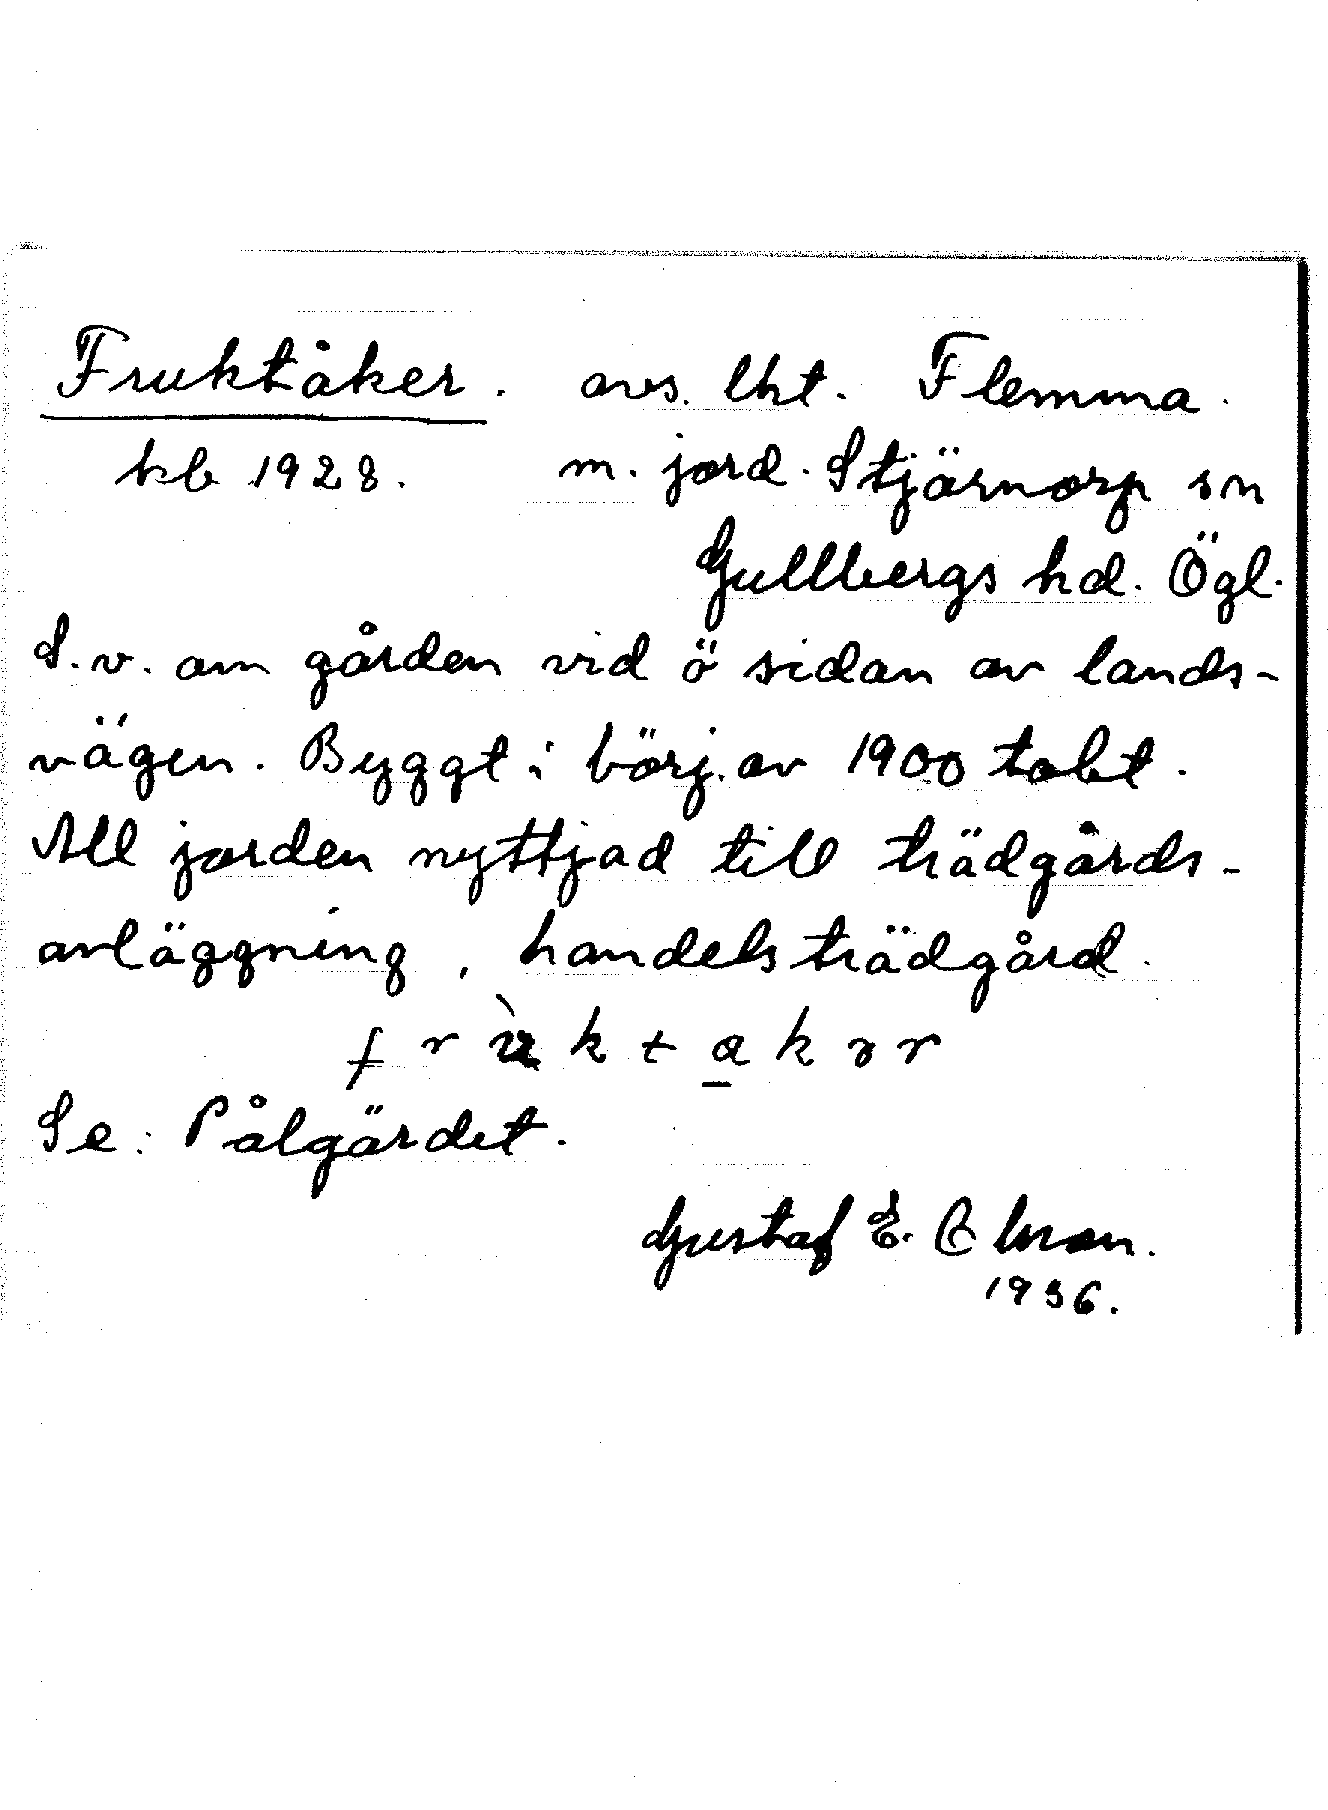 Fruktåker. avs. lht. Flemma.
kb 1928. m. jord. Stjärnorp sn
Gullbergs hd. Ögl.
S.v. om gården vid ö sidan av lands-
vägen. Byggt i börj. av 1900 talet.
All jorden nyttjad till trädgårds-
anläggning, handelsträdgård.
Se: Pålgärdet.
Gustaf E.
1936.